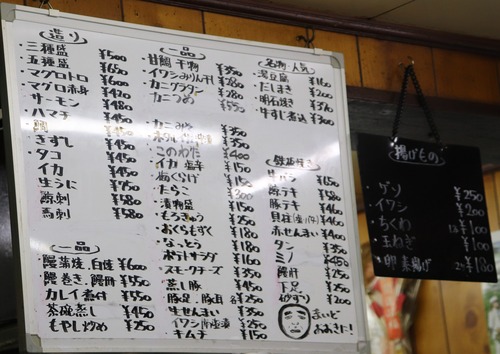 造り
三種盛 ¥500
五種盛 ¥650
マグロトロ ¥600
マグロ赤身 ¥420
サーモン ¥480
ハマチ ¥450
¥450
きずし ¥450
タコ ¥450
イカ ¥450
生うに ¥750
¥580
馬刺 ¥580
一品
鰻蒲焼、白焼 ¥600
鰻巻き、鰻肝 ¥550
カレイ煮付 ¥550
茶碗蒸し ¥450
もやし炒め ¥250
一品
甘鯛干物 ¥350
イワシみりん干し ¥280
カニグラタン ¥280
カニつめ ¥550
カニみそ ¥350
¥350
このわた ¥400
イカ塩辛 ¥150
梅くらげ ¥150
たらこ
漬物盛 ¥150
もろきゅう ¥250
おくらもずく ¥180
なっとう ¥180
ポテトサラダ ¥160
スモークチーズ ¥350
蒸し豚 ¥450
豚足、豚耳 各¥250
生せんまい ¥350
イワシ ¥250
キムチ ¥150
名物・人気
湯豆腐 ¥160
だしまき ¥200
明石焼き
牛すじ煮込 ¥300
鉄板焼き
生バラ ¥650
豚テキ ¥450
貝柱 ¥460
赤せんまい ¥400
タン ¥350
ミノ ¥450
鰻肝 ¥250
下足 ¥250
砂ずり ¥200
まいど
おおきに!
揚げもの
・ゲソ ¥250
・イワシ ¥200
・ちくわ ¥100
・玉ねぎ ¥100
¥180